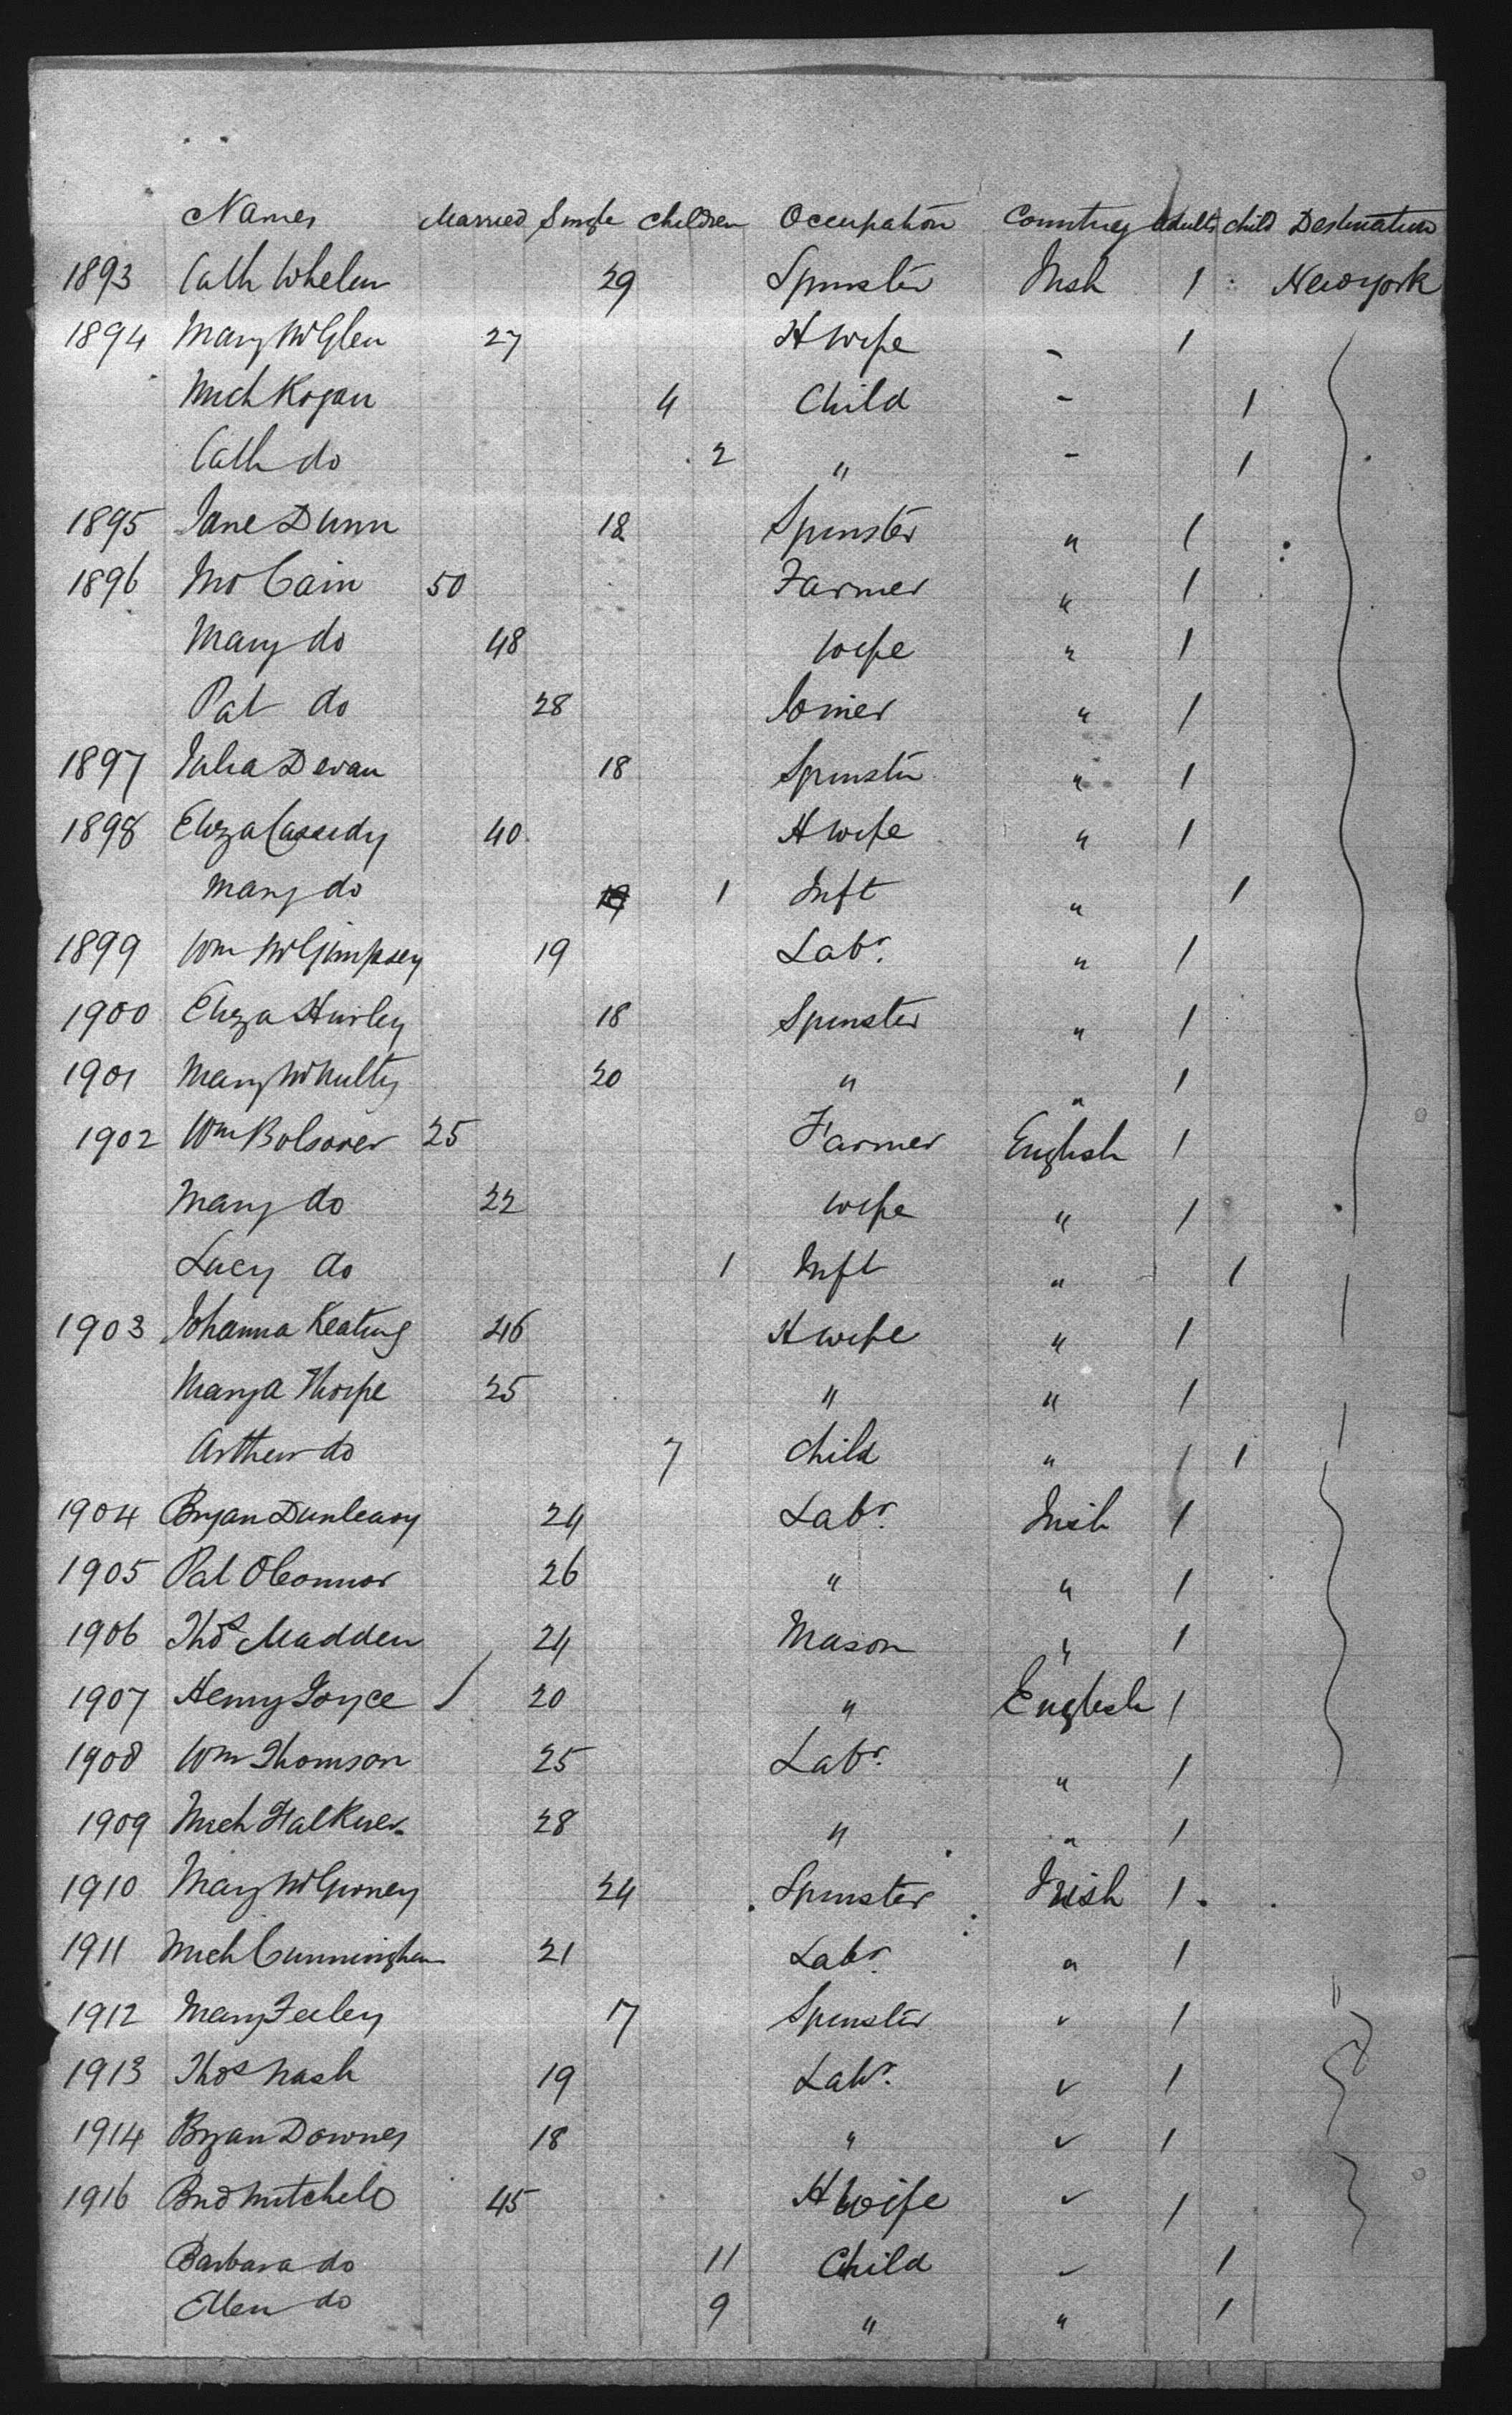 Names Married Single Children Occupation Country Adults Child Destination
1893 Cath Whelen 29 Spinster Irish 1 New York
1894 Mary McGlen 27 H Wife - 1
Mich Kogan 4 Child - 1
Cath do 2 " - 1
1895 Jane Dunn 18 Spinster " 1
1896 Cain 50 Farmer " 1
Mary do 48 Wife " 1
Pat do 28 Joiner " 1
1897 Julia Devan 18 Spinster " 1
1898 Eliza Cassedy 40 H Wife " 1
Mary do 1 Inft " 1
1899 Wm McGimpsey 19 Labr. " 1
1900 Eliza Hurley 18 Spinster " 1
1901 Mary McNulty 20 " " 1
1902 Wm Bolsover 25 Farmer English 1
Mary do 22 Wife " 1
Lucy do 1 Inft " 1
1903 Johanna Keating 46 H Wife " 1
Mary A Thorpe 25 " " 1
Arthur do 7 Child " 1 1
1904 Bryan Dunleavy 24 Labr. Irish 1
1905 Pat OConnor 26 " " 1
1906 Thos Madden 24 Mason " 1
1907 Henry Joyce / 20 " English 1
1908 Wm Thomson 25 Labr. " 1
1909 Mich Falkner 28 " " 1
1910 Mary McGivney 24 Spinster Irish 1
1911 Mich Cunningham 21 Labr. " 1
1912 Mary Feeley 17 Spinster " 1
1913 Thos Nash 19 Labr. " 1
1914 Bryan Downes 18 " " 1
1916 Brid Mitchell 45 H Wife " 1
Barbara do 11 Child " 1
Ellen do 9 " " 1